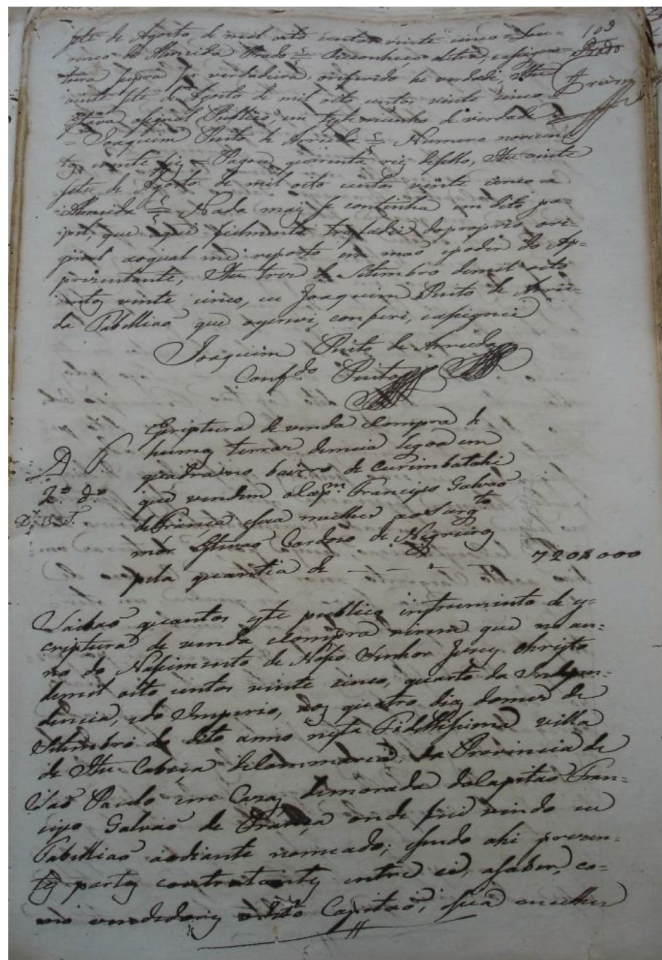 109
sete de Agosto de mil oito centos vinte cinco = Lou-
renço de Almeida Prado = Reconheço a letra, e asigna-
Prado
tura supra ser verdadeira, em fé de verdade, Itu
vinte sete de Agosto de mil oito centos vinte cinco =
signal Publico em testemunho de verdade =
= Joaquim Pinto de Arruda = Numero novecen-
tos e vinte Pagou quarenta reis de sello, Itu vinte
sete de Agosto de mil oito centos vinte cinco =
Almeida = Nada mais se continha em dito pa-
pel, que aqui fielmente trasladei do proprio ori-
ginal ao qual me reporto em mao e poder do Ap-
prezentante, Itu tres de Setembro de mil oito
centos vinte cinco, eu Joaquim Pinto de Arru-
da Tabelliaõ que escrevi, comferi, e asignei
Joaquim Pinto de Arruda
Conf.do Pinto
Escriptura de venda e compra de
humas terras de meia legoa em
quadra no bairro de Curimbatahi
que vendem o Cap.m Francisco Galvaõ
de França e sua mulher ao Sarg.to
mór Cardozo de Negreiros
pela quantia de 720$000
Saibaõ quantos este publico instrumento de es-
criptura de venda e compra virem que no an-
no do Nascimento de Nosso Senhor Jesus Christo
de mil oito centos vinte cinco, quarto da Indepen-
dencia, e do Imperio, aos quatro dias do mes de
Setembro do dito anno nesta Fidelissima villa
de Itu Cabeça de Commarca da Provincia de
Saõ Paulo em Cazas de morada do Capitaõ Fran-
cisco Galvaõ de França onde fui vindo eu
Tabelliaõ aodiante nomeado; e sendo ahi prezen-
tes partes contratantes entre si, a saber, co-
mo vendedores o dito Capitaõ, e sua mulher